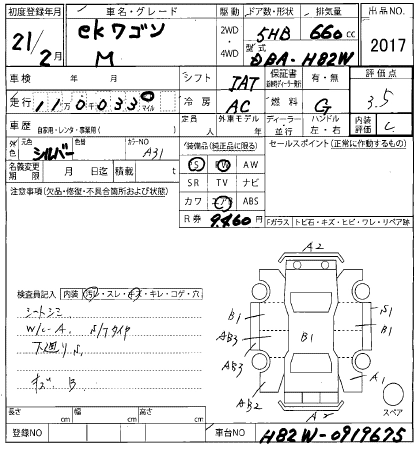 初度登録年月 車名・グレード 駆動 ドア数・形状 排気量 出品NO.
21/2月 ekワゴン M 2WD・4WD 5HB 660cc 2017
型式 DBA-H82W
車検 年 月 シフト IAT 保証書 有・無 評価点
走行 110,033 マイル 冷房 AC 燃料 G 3.5
車歴 自家用・レンタ・事業用( ) 定員 人 外車モデル 年 ディーラー・並行 ハンドル 左・右 内装評価 C
外色 元色 シルバー 色替 カラーNO A31
装備品(純正品に限る) セールスポイント(正常に作動するもの)
名義変更期限 月 日迄 積載 t
PS PW AW
注意事項(欠品・修復・不具合箇所および状態)
SR TV ナビ
カワ エアB ABS
R券 9,460円
Fガラス トビ石・キズ・ヒビ・ワレ・リペア跡
A2
検査員記入 内装 汚レ・スレ・キズ・キレ・コゲ・穴
シートシミ
W/C-A S/Tタイヤ
下廻りS
キズ B
B1 S1
AB3 B1 B1
AB3
AB2 A1
A2
スペア
長さ cm 幅 cm 高さ cm
登録NO 車台NO H82W-0919675